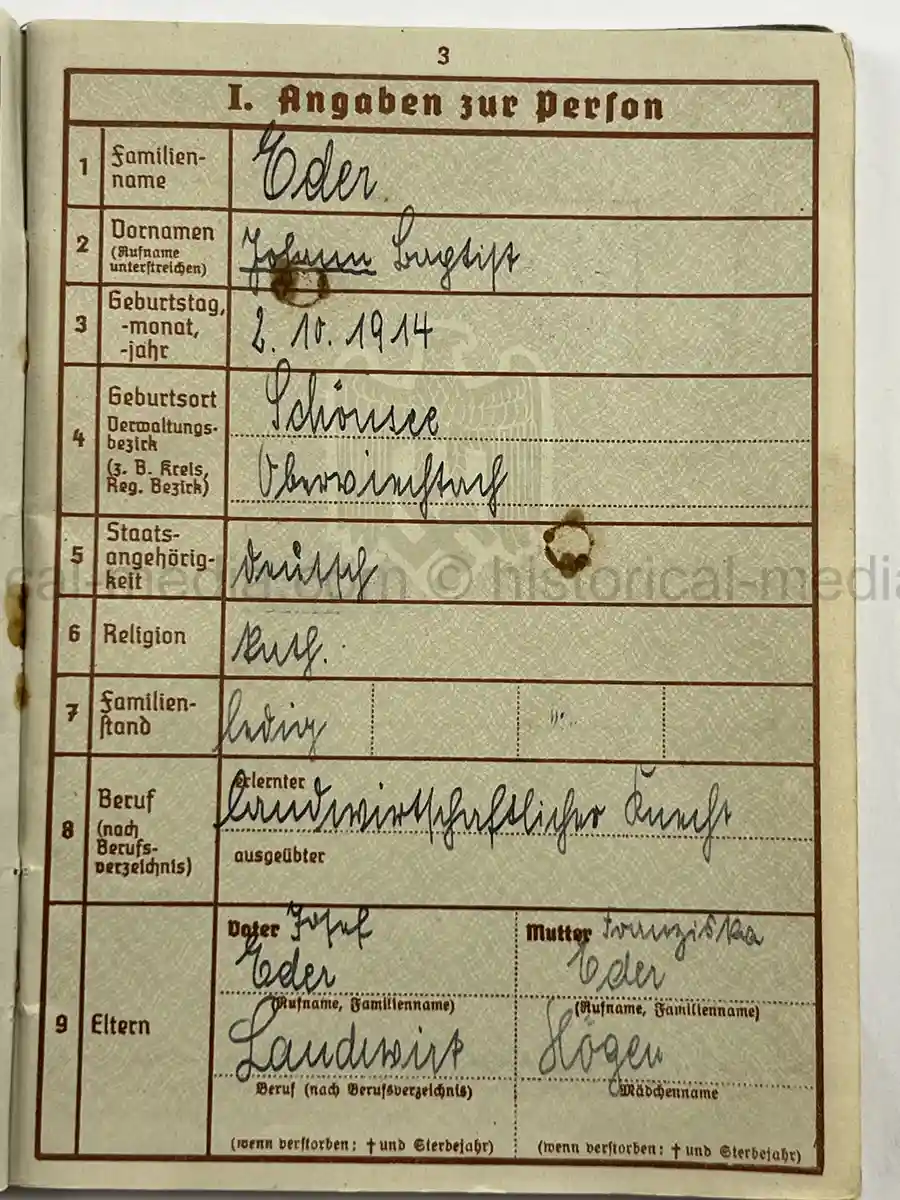 3
I. Angaben zur Person
1
Familien-
name
Eder
2
Vornamen
(Rufname
unterstreichen)
Johann Baptist
3
Geburtstag,
-monat,
-jahr
2. 10. 1914
4
Geburtsort
Verwaltungs-
bezirk
(z. B. Kreis,
Reg. Bezirk)
Schönsee
Oberviechtach
5
Staats-
angehörig-
keit
deutsch
6
Religion
kath.
7
Familien-
stand
ledig
8
Beruf
(nach
Berufs-
verzeichnis)
erlernter
landwirtschaftlicher Knecht
ausgeübter
9
Eltern
Vater Josef
Eder
(Rufname, Familienname)
Landwirt
Beruf (nach Berufsverzeichnis)
(wenn verstorben: † und Sterbejahr)
Mutter Franziska
Eder
(Rufname, Familienname)
Högen
Mädchenname
(wenn verstorben: † und Sterbejahr)
cal-media.com © historical-media